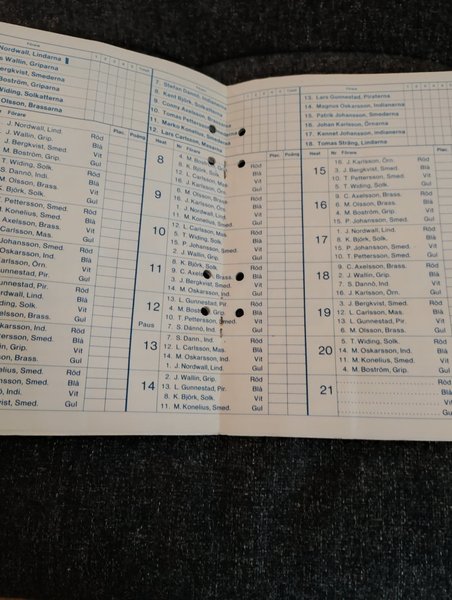 Förare 1 2 3 4 5 Total
Nordwall, Lindarna
s Wallin, Griparna
Bergkvist, Smederna
Boström, Griparna
Widing, Solkatterna
Olsson, Brassarna
Förare Plac. Poäng
J. Nordwall, Lind. Röd
J. Wallin, Grip. Blå
J. Bergkvist, Smed. Vit
M. Boström, Grip. Gul
T. Widing, Solk. Röd
S. Dannö, Ind. Blå
M. Olsson, Brass. Vit
K. Björk, Solk. Gul
Pettersson, Smed. Röd
M. Konelius, Smed. Blå
Axelsson, Brass. Vit
Carlsson, Mas. Gul
Johansson, Smed. Röd
Oskarsson, Ind. Blå
Karlsson, Örn. Vit
Gunnestad, Pir. Gul
unnestad, Pir. Röd
Nordwall, Lind. Blå
Vit
Gul
Röd
Blå
Vit
hansson, Smed. Gul
elius, Smed. Röd
Grip. Blå
ö, Indi. Vit
kvist, Smed. Gul
Förare 1 2 3 4 5 Total
7. Stefan Dannö, Indianerna
8. Kent Björk, Solkatterna
9. Conny Axelsson, Brassarna
10. Tomas Pettersson, Smederna
11. Marko Konelius, Smederna
12. Lars Carlsson, Masarna
Heat Nr Förare Plac. Poäng
8 4. M. Boström, Grip. Röd
8. K. Björk, Solk. Blå
12. L. Carlsson, Mas. Vit
16. J. Karlsson, Örn. Gul
9 6. M. Olsson, Brass. Röd
16. J. Karlsson, Örn. Blå
1. J. Nordwall, Lind. Vit
11. M. Konelius, Smed. Gul
10 12. L. Carlsson, Mas. Röd
5. T. Widing, Solk. Blå
15. P. Johansson, Smed. Vit
2. J. Wallin, Grip. Gul
11 8. K. Björk, Solk. Röd
9. C. Axelsson, Brass. Blå
3. J. Bergkvist, Smed. Vit
14. M. Oskarsson, Ind. Gul
12 13. L. Gunnestad, Pir. Röd
4. M. Boström, Grip. Blå
10. T. Pettersson, Smed. Vit
7. S. Dannö, Ind. Gul
Paus
13 7. S. Dann, Ind. Röd
12. L. Carlsson, Mas. Blå
14. M. Oskarsson, Ind. Vit
1. J. Nordwall, Lind. Gul
14 2. J. Wallin, Grip. Röd
13. L. Gunnestad, Pir. Blå
8. K. Björk, Solk. Vit
11. M. Konelius, Smed. Gul
Förare 1 2 3 4 5 Total
13. Lars Gunnestad, Piraterna
14. Magnus Oskarsson, Indianerna
15. Patrik Johansson, Smederna
16. Johan Karlsson, Örnarna
17. Kennet Johansson, Indianarna
18. Tomas Sträng, Lindarna
Heat Nr Förare Plac.
15 16. J. Karlsson, Örn. Röd
3. J. Bergkvist, Smed. Blå
10. T. Pettersson, Smed. Vit
5. T. Widing, Solk. Gul
16 9. C. Axelsson, Brass. Röd
6. M. Olsson, Brass. Blå
4. M. Boström, Grip. Vit
15. P. Johansson, Smed. Gul
17 1. J. Nordwall, Lind. Röd
8. K. Björk, Solk. Blå
15. P. Johansson, Smed. Vit
10. T. Pettersson, Smed. Gul
18 9. C. Axelsson, Brass. Röd
2. J. Wallin, Grip. Blå
7. S. Dannö, Ind. Vit
16. J. Karlsson, Örn. Gul
19 3. J. Bergkvist, Smed. Röd
12. L. Carlsson, Mas. Blå
13. L. Gunnestad, Pir. Vit
6. M. Olsson, Brass. Gul
20 5. T. Widing, Solk. Röd
14. M. Oskarsson, Ind. Blå
11. M. Konelius, Smed. Vit
4. M. Boström, Grip. Gul
21 Röd
Blå
Vit
Gul